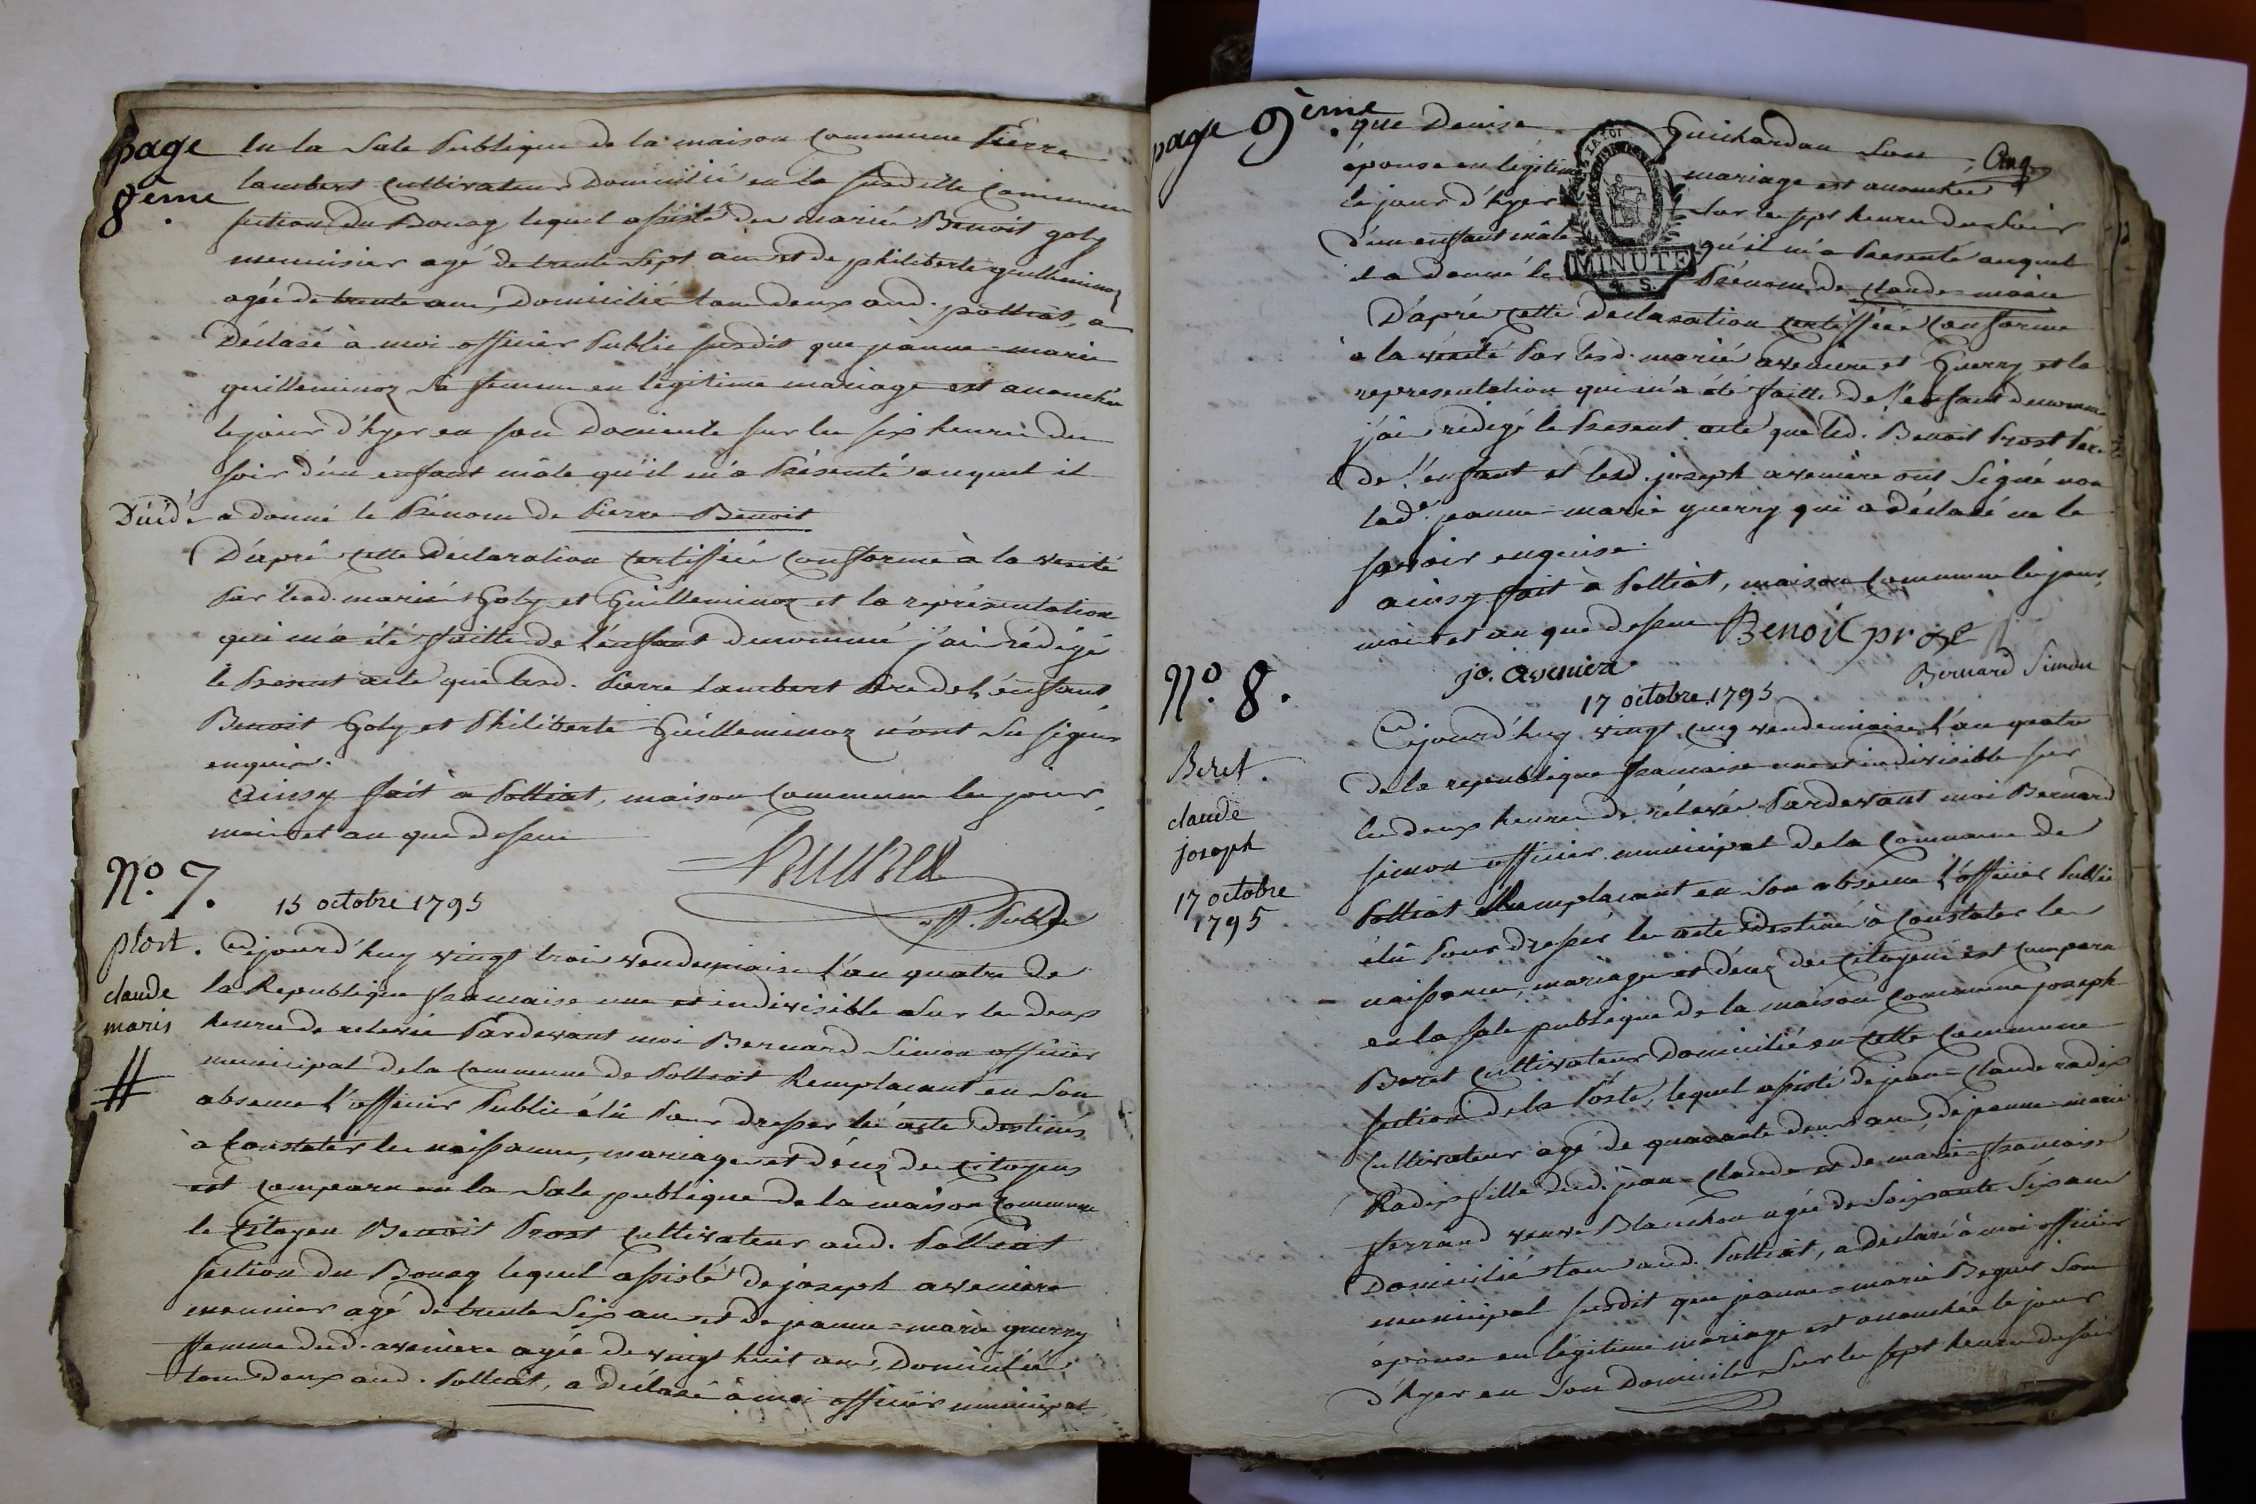 page
8ème
en la Sale Publique de la maison Commune Pierre
lambert Cultivateur Domicilié en la susditte Commune
section du Bourg lequel assisté des mariés Benoit goly
menuisier agé de trente Sept ans et de philiberte guilleminoz
agée de trente ans, Domiciliés tous deux aud. polliat, a
Déclaré à moi officier Public susdit que jeanne-marie
guilleminoz sa femme en légitime mariage est accouchée
le jour d'hyer en son Domicile sur les six heures du
soir d'un enfant mâle qu'il m'a Présenté auquel il
Décédé a donné le Prénom de Pierre-Benoit
D'après cette Déclaration Certiffiée Conforme à la vérité
Par lesd. mariés Goly et Guilleminoz et la représentation
qui m'a été faitte de l'enfant denommé j'ai rédigé
le Present acte que lesd. Pierre Lambert Père de l'enfant,
Benoit Goly et Philiberte Guilleminoz n'ont Su signer
enquis.
ainsy fait à Polliat, maison Commune les jour,
mois et an que dessus
off. Public
No. 7.
15 octobre 1795
prost.
claude
marie
#
Cejourd'huy vingt trois vendemiaire l'an quatre de
la Republique francaise une et indivisible Sur les deux
heures de relevée Pardevant moi Bernard Simon officier
municipal de la Commune de Polliat Remplacant en Son
absence l'officier Public élû Pour dresser les actes Destinés
à Constater les naissances, mariages et décez des Citoyens
est Comparu en la Sale publique de la maison Commune
le Citoyen Benoit Prost Cultivateur aud. Polliat
section du Bourg lequel assisté de joseph aveniere
meunier agé de trente Six ans et de jeanne-marie guerry
femme dud. avenière agée de vingt huit ans, Domiciliés
tous deux aud. Polliat, a déclaré à moi officier municipal
page 9ème
que Denise Guichardan Son
Cinq
épouse en légitime mariage est accouchée
le jour d'hyer Sur les sept heures du Soir
d'un enfant mâle qu'il m'a Presenté auquel
il a donné le Prénom de claude-marie
LA LOI
MINUTE
4. S.
D'après cette Declaration certiffiée Conforme
à la vérité Par lesd. mariés aveniere et Guerry et la
representation qui m'a été faitte de l'enfant denommé
j'ai rédigé le Present acte que led. Benoit Prost Père
de l'enfant et led. joseph avenière ont Signé non
lade. jeanne-marie guerry qui a Déclaré ne le
savoir enquise.
ainsy fait à Polliat, maison Commune les jour,
mois et an que dessus Benoit prost
jo. aveniere
Bernard Simon
No. 8.
17 octobre 1795
Beret.
claude
joseph
17 octobre
1795
Cejourd'huy vingt cinq vendemiaire l'an quatre
de la republique francaise une et indivisible sur
les deux heures de rélevée Pardevant moi Bernard
simon officier municipal de la Commune de
Polliat Remplacant en Son absence l'officier Public
élû Pour dresser les actes Destinés à Constater les
naissances, mariages et décez des Citoyens est Comparu
en la sale publique de la maison Commune joseph
Beret Cultivateur Domicilié en cette Commune
section de la Poste, lequel assisté de jean-Claude radix
Cultivateur agé de quarante deux ans, de jeanne-marie
Radix fille dud. jean-Claude et de marie-francoise
ferrand veuve Blanchon agée de Soixante Six ans
Domiciliés tous aud. Polliat, a Déclaré à moi officier
municipal susdit que jeanne-marie Beguet Son
épouse en légitime mariage est accouchée le jour
d'hyer en Son Domicile Sur les sept heures du soir